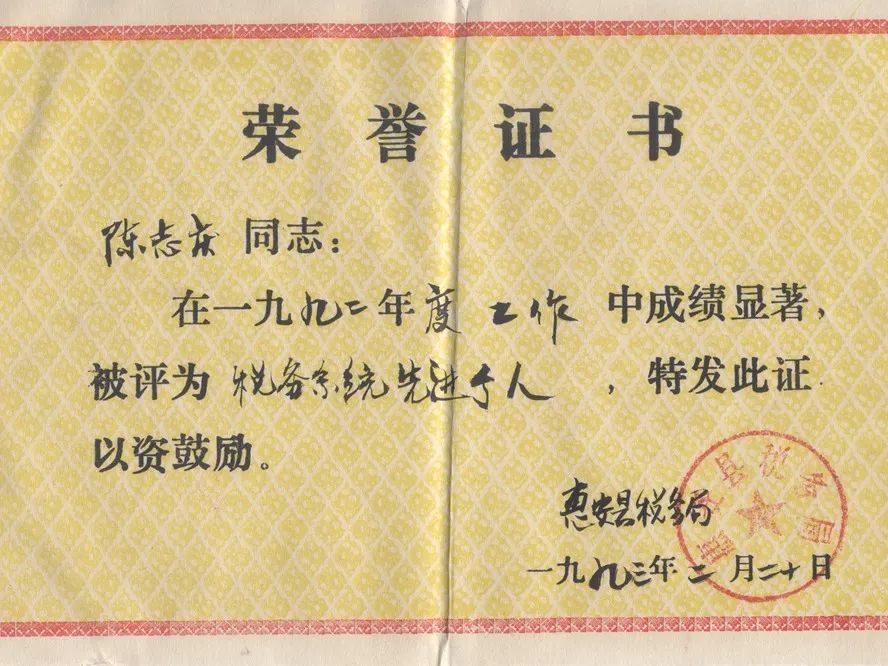 荣誉证书
陈志庆同志：
在一九九二年度工作中成绩显著，
被评为税务系统先进个人，特发此证
以资鼓励。
惠安县税务局
惠安县税务局
一九九三年二月二十日